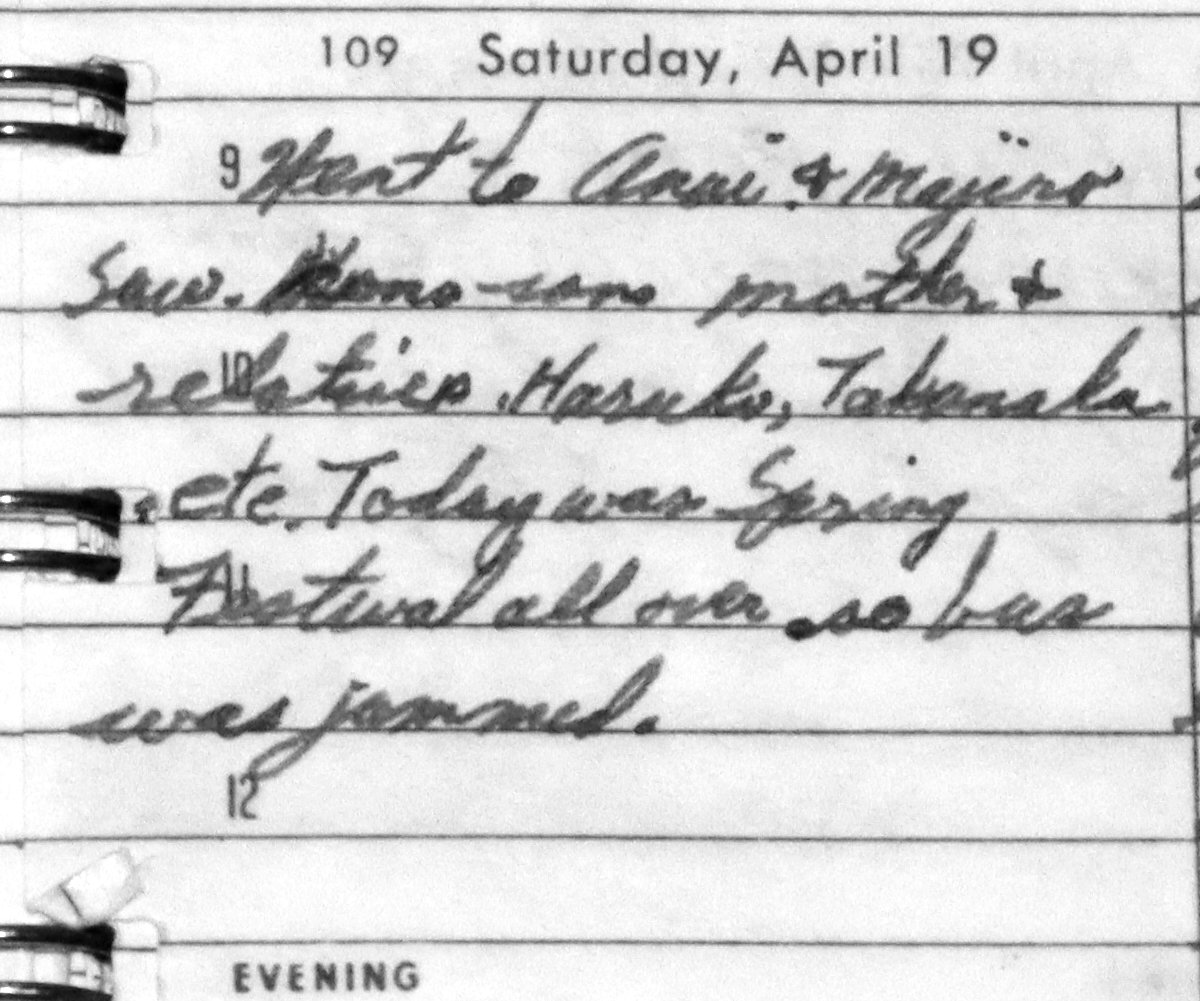 109 Saturday, April 19
9 Went to Anai & Majiro
Saw. Kono-sans mother &
10 relatives. Haruko, Takanaka
etc. Today was Spring
11 Festival all over so bus
was jammed.
12
EVENING